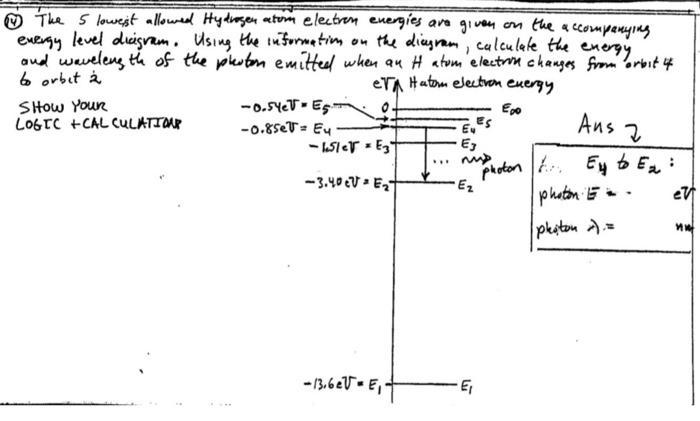 14 The 5 lowest allowed Hydrogen atom electron energies are given on the accompanying
energy level diagram. Using the information on the diagram, calculate the energy
and wavelength of the photon emitted when an H atom electron changes from orbit 4
to orbit 2
SHOW YOUR
LOGIC + CALCULATIONS
eV H atom electron energy
0 E∞
-0.54eV = E5 E5
-0.85eV = E4 E4
-1.51eV = E3 E3
... photon
-3.40eV = E2 E2
-13.6eV = E1 E1
Ans
E4 to E2 :
photon E = eV
photon λ = nm